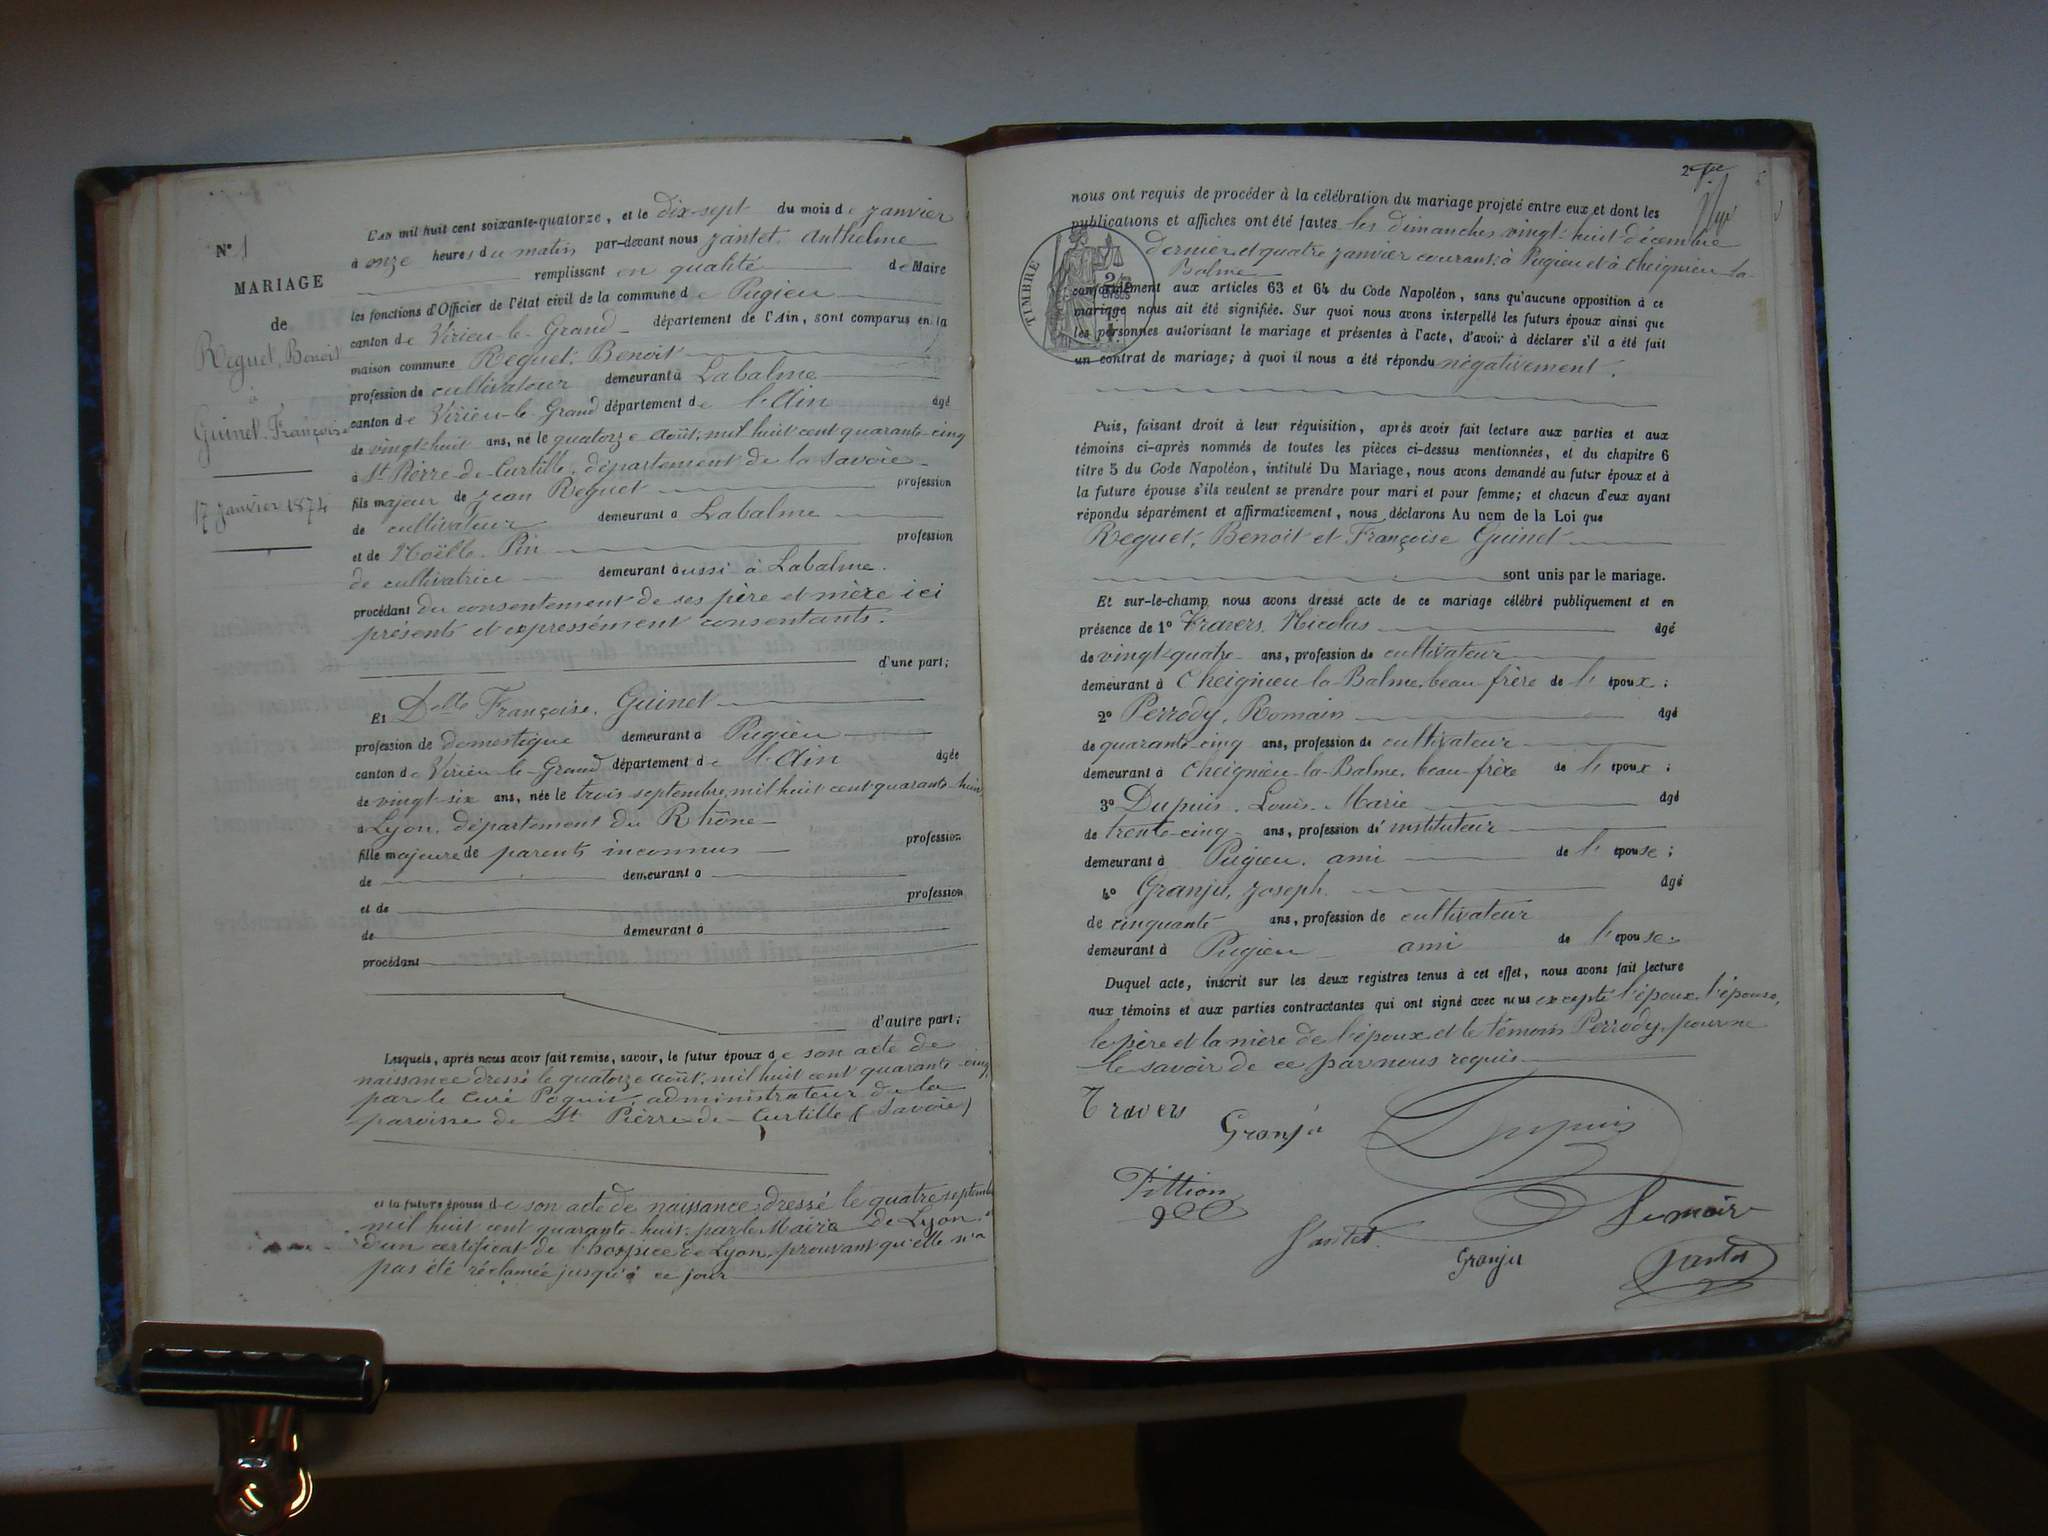 N° 1
MARIAGE
de
Reguet, Benoit
à
Guinet. Françoise
17 janvier 1874
L'AN mil huit cent soixante-quatorze, et le dix-sept du mois de janvier
à onze heures du matin par-devant nous Jantet Anthelme
remplissant en qualité de Maire
les fonctions d'Officier de l'état civil de la commune de Pugieu
canton de Virieu-le-Grand département de l'Ain, sont comparus en la
maison commune Reguet, Benoit
profession de cultivateur demeurant à Labalme
canton de Virieu-le-Grand département de l'Ain âgé
de vingt-huit ans, né le quatorze août, mil huit cent quarante-cinq
à St Pierre-de-Curtille, département de la Savoie
fils majeur de Jean Reguet profession
de cultivateur demeurant à Labalme
et de Noëlle Pin profession
de cultivatrice demeurant aussi à Labalme.
procédant du consentement de ses père et mère ici
présents et expressément consentants.
d'une part;
Et Delle Françoise, Guinet
profession de domestique demeurant à Pugieu
canton de Virieu-le-Grand département de l'Ain âgée
de vingt-six ans, née le trois septembre, mil huit cent quarante-huit
à Lyon, département du Rhône
fille majeure de parents inconnus profession
de demeurant à
et de profession
de demeurant à
procédant
d'autre part;
Lesquels, après nous avoir fait remise, savoir, le futur époux de son acte de
naissance dressé le quatorze août, mil huit cent quarante-cinq,
par le Curé Poguis, administrateur de la
paroisse de St Pierre-de-Curtille (Savoie)
et la future épouse de son acte de naissance dressé le quatre septembre
mil huit cent quarante-huit, par le Maire de Lyon,
d'un certificat de l'hospice de Lyon, prouvant qu'elle n'a
pas été réclamée jusqu'à ce jour
nous ont requis de procéder à la célébration du mariage projeté entre eux et dont les
publications et affiches ont été faites les dimanches vingt-huit décembre
dernier et quatre janvier courant, à Pugieu et à Cheignieu-la-
Balme
TIMBRE
conformément aux articles 63 et 64 du Code Napoléon, sans qu'aucune opposition à ce
mariage nous ait été signifiée. Sur quoi nous avons interpellé les futurs époux ainsi que
les personnes autorisant le mariage et présentes à l'acte, d'avoir à déclarer s'il a été fait
un contrat de mariage; à quoi il nous a été répondu négativement.
Puis, faisant droit à leur réquisition, après avoir fait lecture aux parties et aux
témoins ci-après nommés de toutes les pièces ci-dessus mentionnées, et du chapitre 6
titre 5 du Code Napoléon, intitulé Du Mariage, nous avons demandé au futur époux et à
la future épouse s'ils veulent se prendre pour mari et pour femme; et chacun d'eux ayant
répondu séparément et affirmativement, nous déclarons Au nom de la Loi que
Reguet, Benoit et Françoise Guinet
sont unis par le mariage.
Et sur-le-champ nous avons dressé acte de ce mariage célébré publiquement et en
présence de 1° Travers, Nicolas âgé
de vingt-quatre ans, profession de cultivateur
demeurant à Cheignieu-la-Balme, beau-frère de l'époux;
2° Perrody, Romain âgé
de quarante-cinq ans, profession de cultivateur
demeurant à Cheignieu-la-Balme, beau-frère de l'époux;
3° Dupuis, Louis-Marie âgé
de trente-cinq ans, profession d'instituteur
demeurant à Pugieu, ami de l'épouse;
4° Granju, Joseph. âgé
de cinquante ans, profession de cultivateur
demeurant à Pugieu ami de l'épouse.
Duquel acte, inscrit sur les deux registres tenus à cet effet, nous avons fait lecture
aux témoins et aux parties contractantes qui ont signé avec nous excepté l'époux, l'épouse,
le père et la mère de l'époux, et le témoin Perrody, pour ne
le savoir de ce par nous requis
Travers
Granju
Dupuis
Pittion
Le maire
Jantet
Granju
Jantet